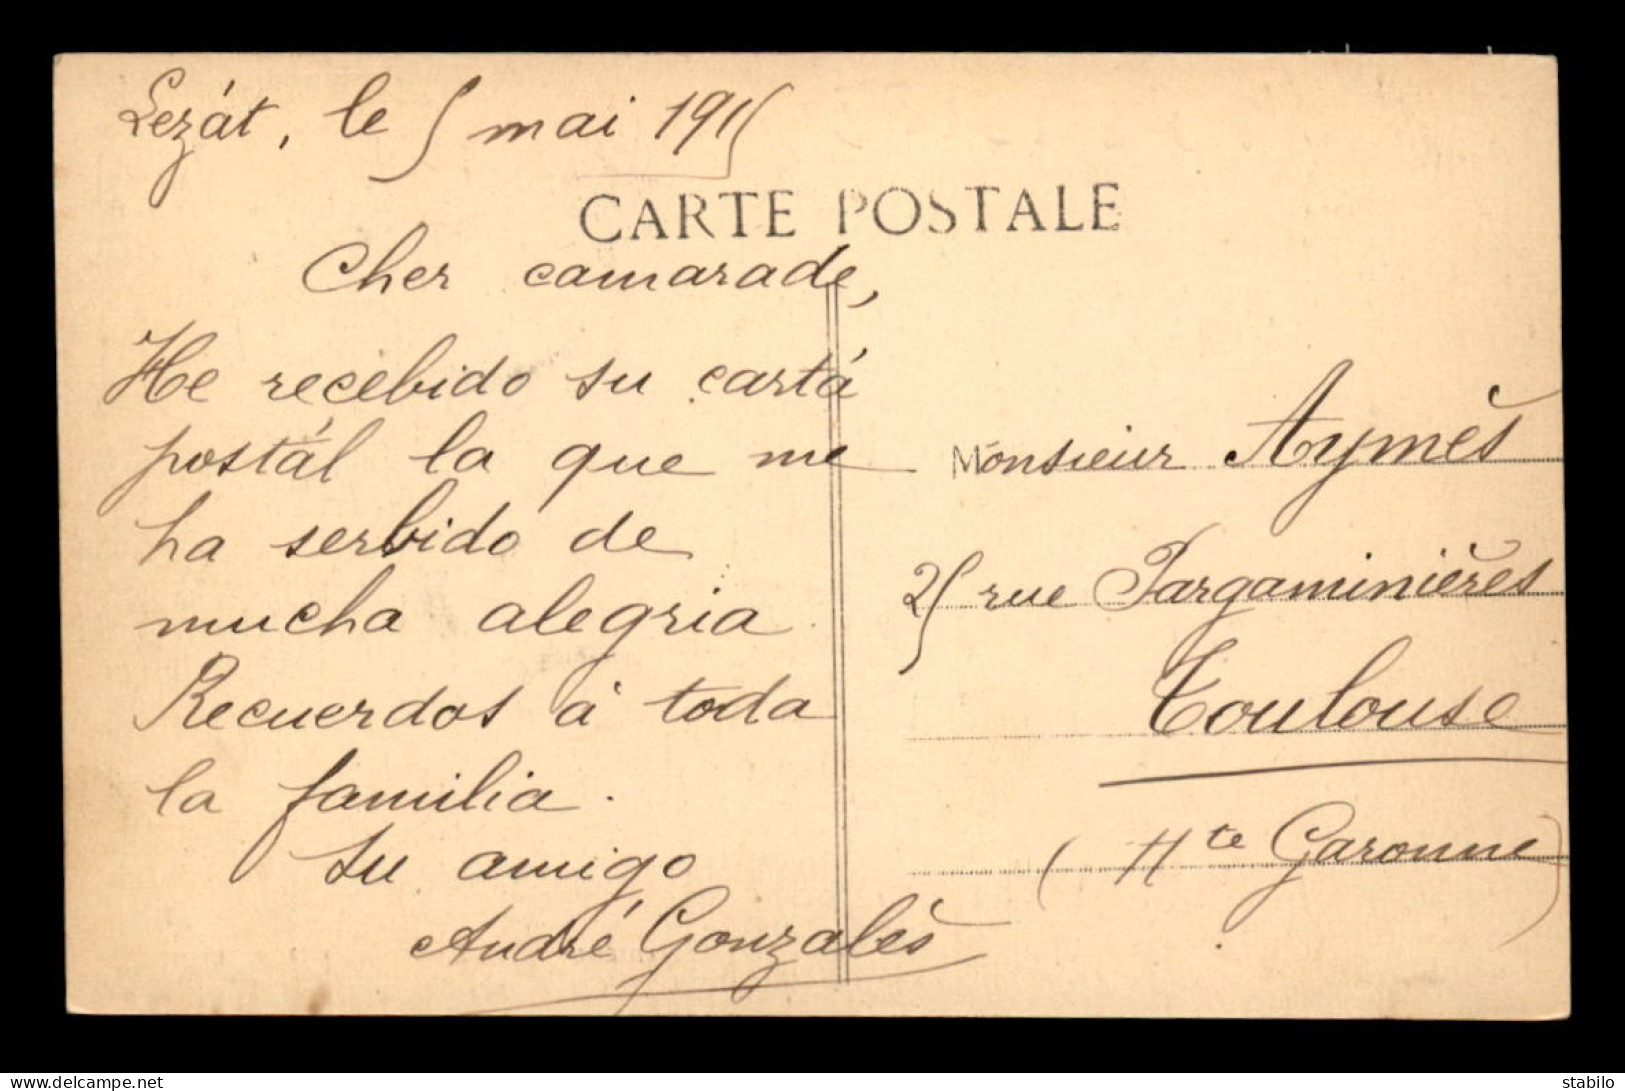 Lezát, le 5 mai 1915
CARTE POSTALE
Cher camarade,
He recebido su cartá
postál la que me
ha serbido de
mucha alegria
Recuerdos á toda
la familia.
Su amigo
André Gonzalès
Monsieur Aymès
25 rue Pargaminières
Toulouse
(Hte Garonne)
delcampe.net
stabilo